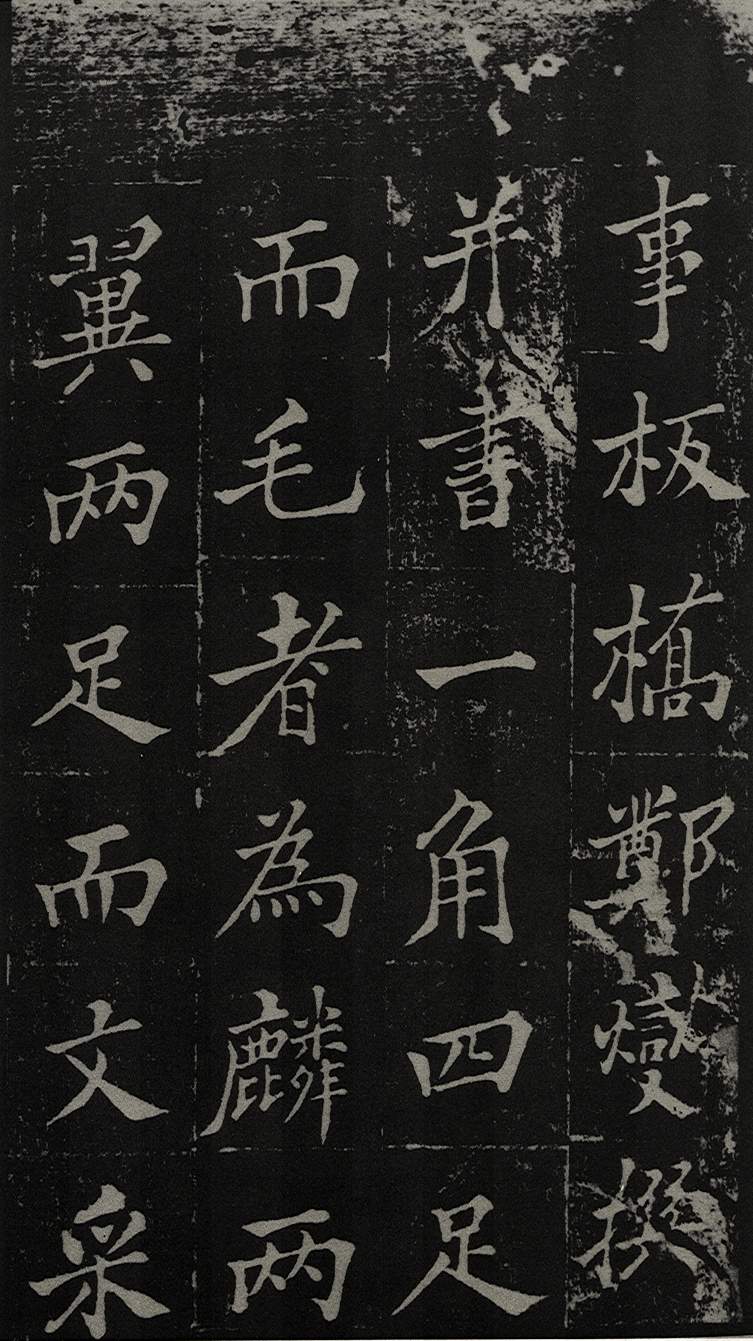 事板橋鄭燮撰
并書一角四足
而毛者為麟两
翼两足而文采